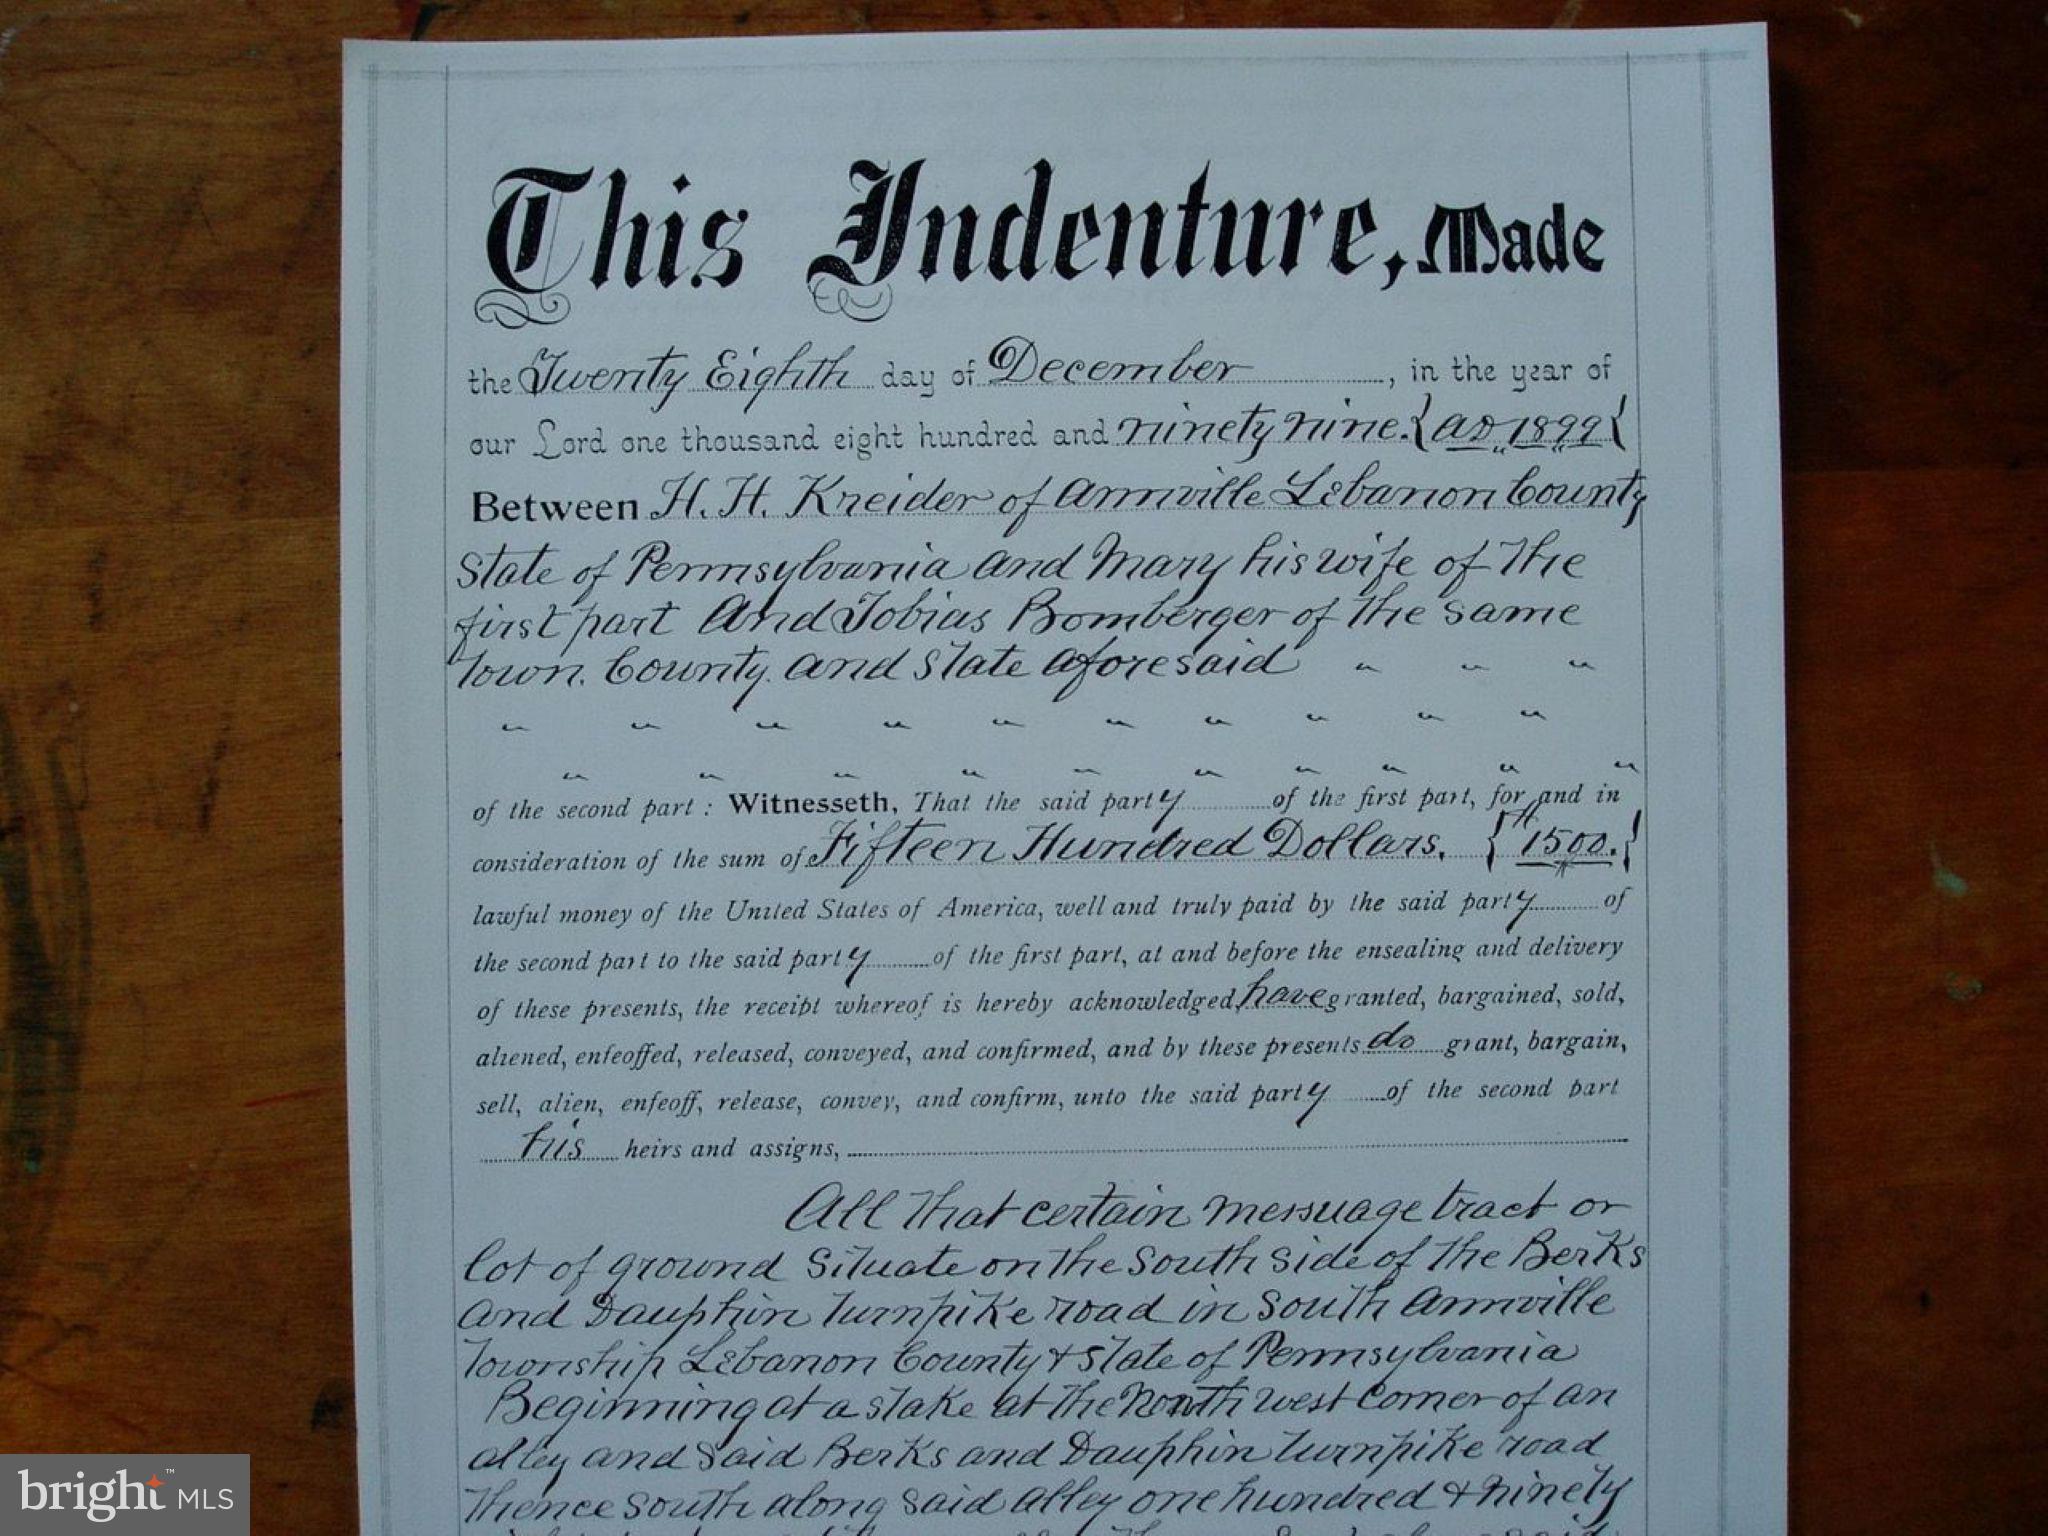 This Indenture, Made
the Twenty Eighth day of December, in the year of
our Lord one thousand eight hundred and ninety nine. { AD 1899 {
Between H. H. Kreider of Annville Lebanon County
State of Pennsylvania and Mary his wife of the
first part And Tobias Bomberger of the same
Town. County. and State aforesaid " " "
" " " " " " " " " "
" " " " " " " " " "
of the second part : Witnesseth, That the said party of the first part, for and in
consideration of the sum of Fifteen Hundred Dollars. { 1500. }
lawful money of the United States of America, well and truly paid by the said party of
the second part to the said party of the first part, at and before the ensealing and delivery
of these presents, the receipt whereof is hereby acknowledged, have granted, bargained, sold,
aliened, enfeoffed, released, conveyed, and confirmed, and by these presents do grant, bargain,
sell, alien, enfeoff, release, convey, and confirm, unto the said party of the second part
his heirs and assigns,
All that certain messuage tract or
lot of ground situate on the South side of the Berks
and Dauphin Turnpike road in South Annville
Township Lebanon County & State of Pennsylvania
Beginning at a stake at the North west Corner of an
alley and said Berks and Dauphin Turnpike road
thence south along said alley one hundred & ninety
bright™ MLS